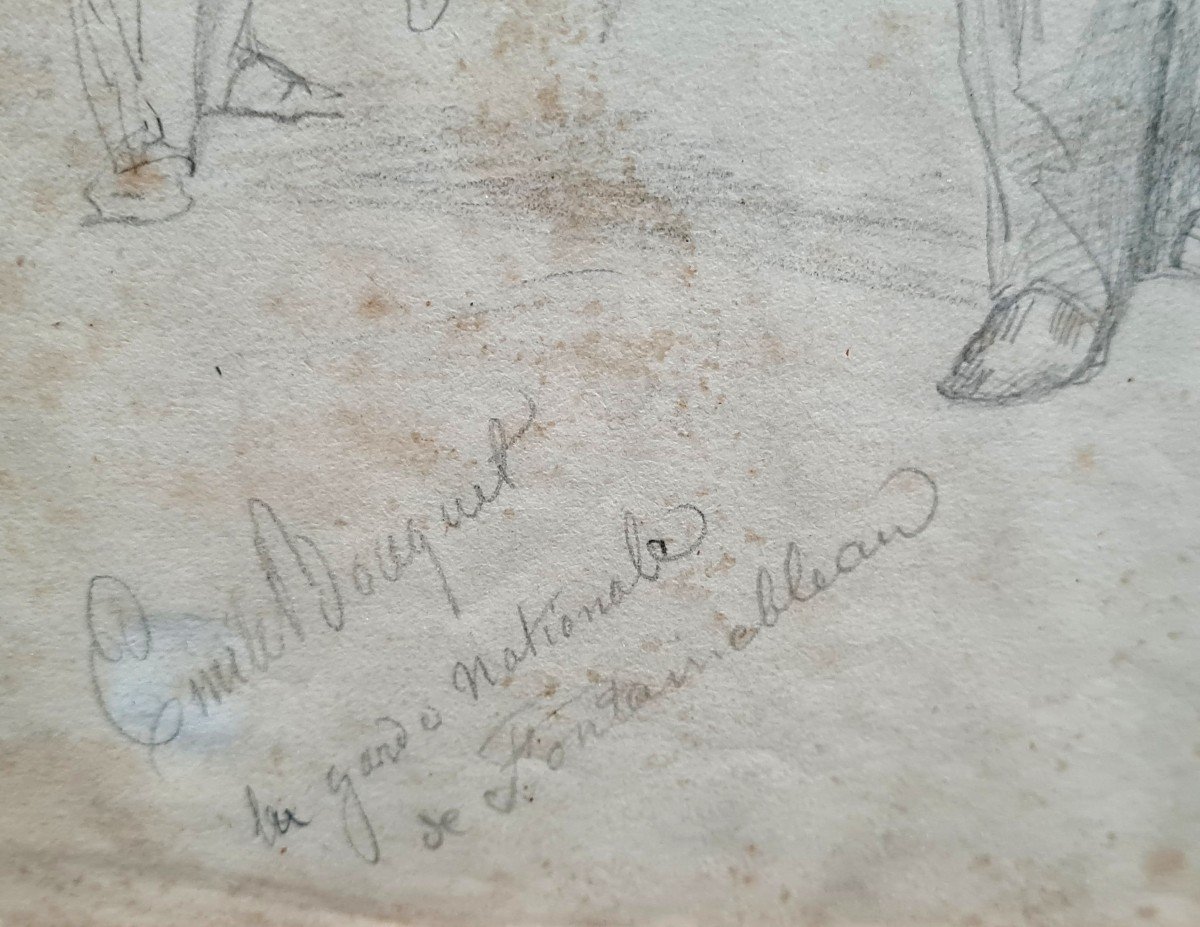 Emile Bouquet
la garde nationale
de Fontainebleau